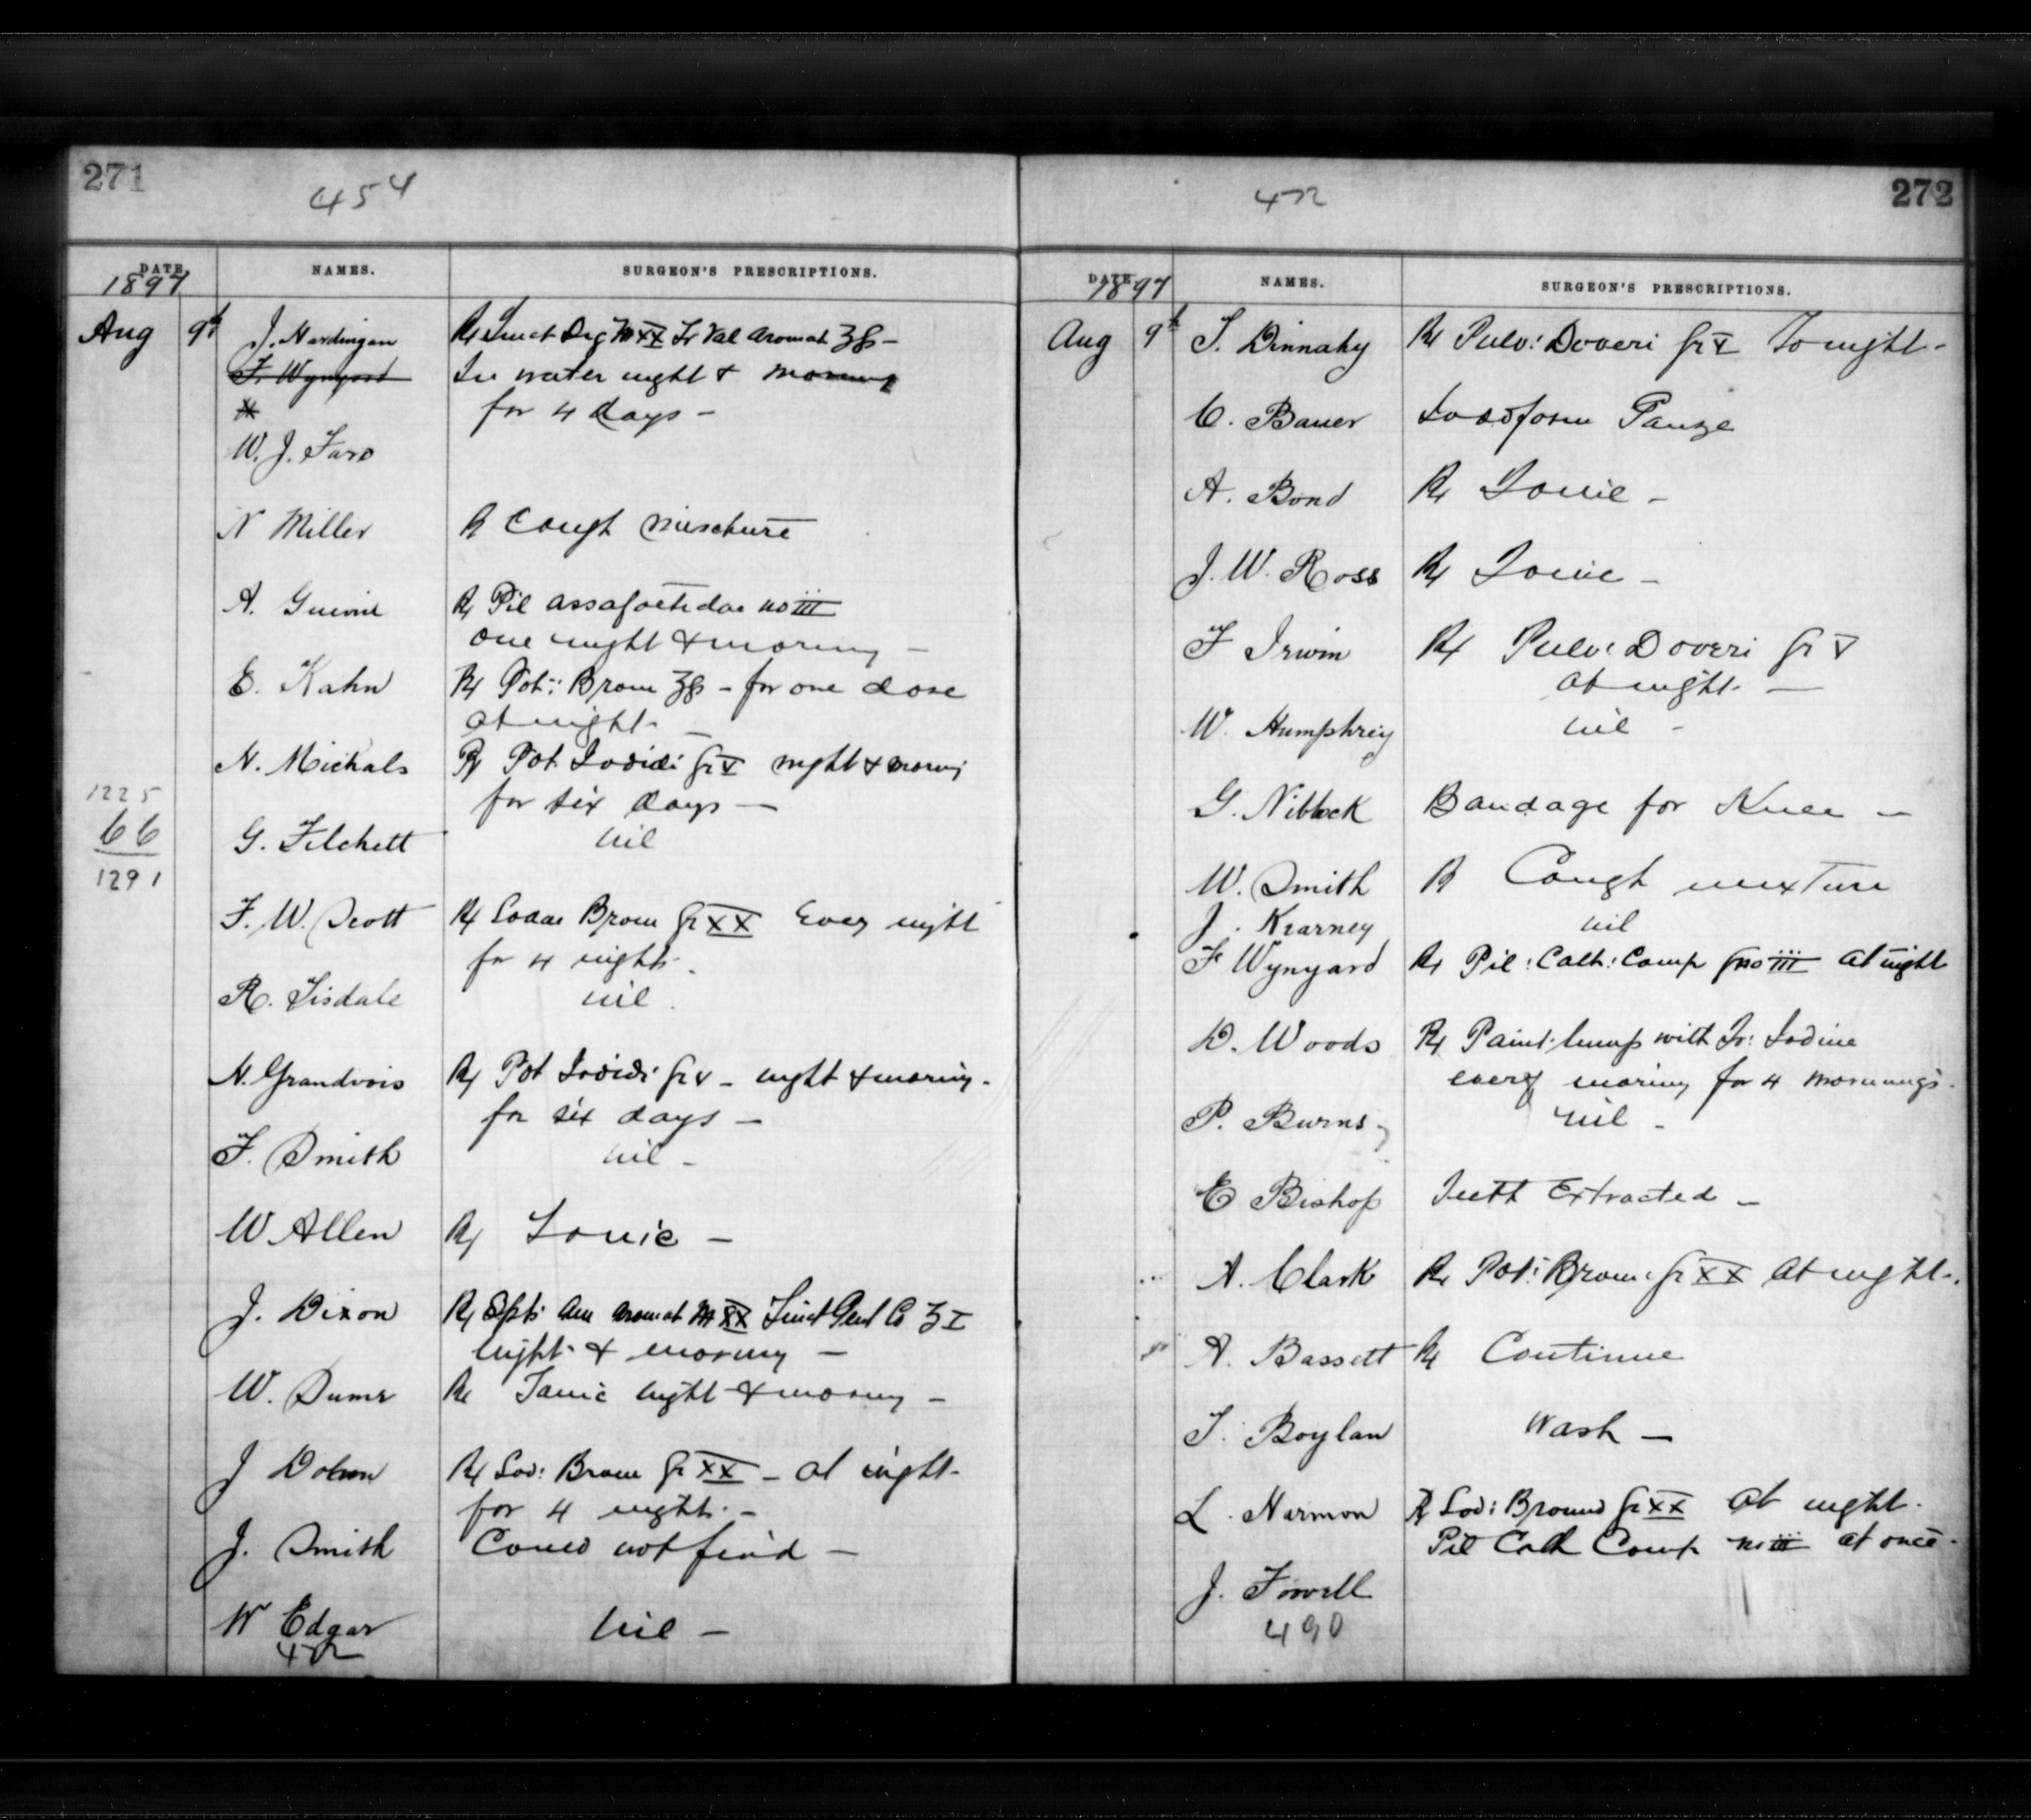 271
454
DATE NAMES. SURGEON'S PRESCRIPTIONS.
1897
Aug 9th J. Hardingan ℞ Tinct Dig ♏XX Tr Val Aromat ʒß –
F. Wynyard In water night & morning
for 4 days –
W. J. Faro
N Miller ℞ Cough mixchure
A. ℞ Pil assafoetidae no iii
one night & morning –
E. Kahn ℞ Pot: Brom ʒß – for one dose
at night –
N. Michals ℞ Pot. Iodidi Gr V night & morning
for six days –
1225
66
1291
G. Filchett nil
F. W. Scott ℞ Sodae Brom Gr XX Every night
for 4 nights.
R. Tisdale nil.
N. Grandvois ℞ Pot Iodidi Gr V – night & morning –
for six days –
F. Smith nil –
W Allen ℞ Tonic –
J. Dixon ℞ Spts Am Aromat ♏XX Tinct Gent Co ʒ I
night & morning –
W. ℞ Tonic night & morning –
J ℞ Sod: Brom Gr XX – at night –
for 4 nights –
J. Smith Could not find –
W Edgar nil –
472
472
272
DATE NAMES. SURGEON'S PRESCRIPTIONS.
1897
Aug 9th T. Dinnahy ℞ Pulv: Doveri Gr V To night –
C. Bauer Iodoform Gauze
A. Bond ℞ Tonic –
J. W. Ross ℞ Tonic –
F Irwin ℞ Pulv: Doveri Gr V
at night. –
W. Humphrey nil –
G. Niblock Bandage for Knee –
W. Smith ℞ Cough mixture
J. Kearney nil
F Wynyard ℞ Pil: Cath: Comp no iii at night
D. Woods ℞ Paint lump with Tr: Iodine
every morning for 4 mornings.
P. Burns nil –
E Bishop Teeth Extracted –
A. Clark ℞ Pot: Brom: Gr XX at night –
A. Bassett ℞ Continue
T. Boylan Wash –
L. Harmon ℞ Sod: Bromd Gr XX at night.
Pil Cath Comp no iii at once –
J. Fowell
490